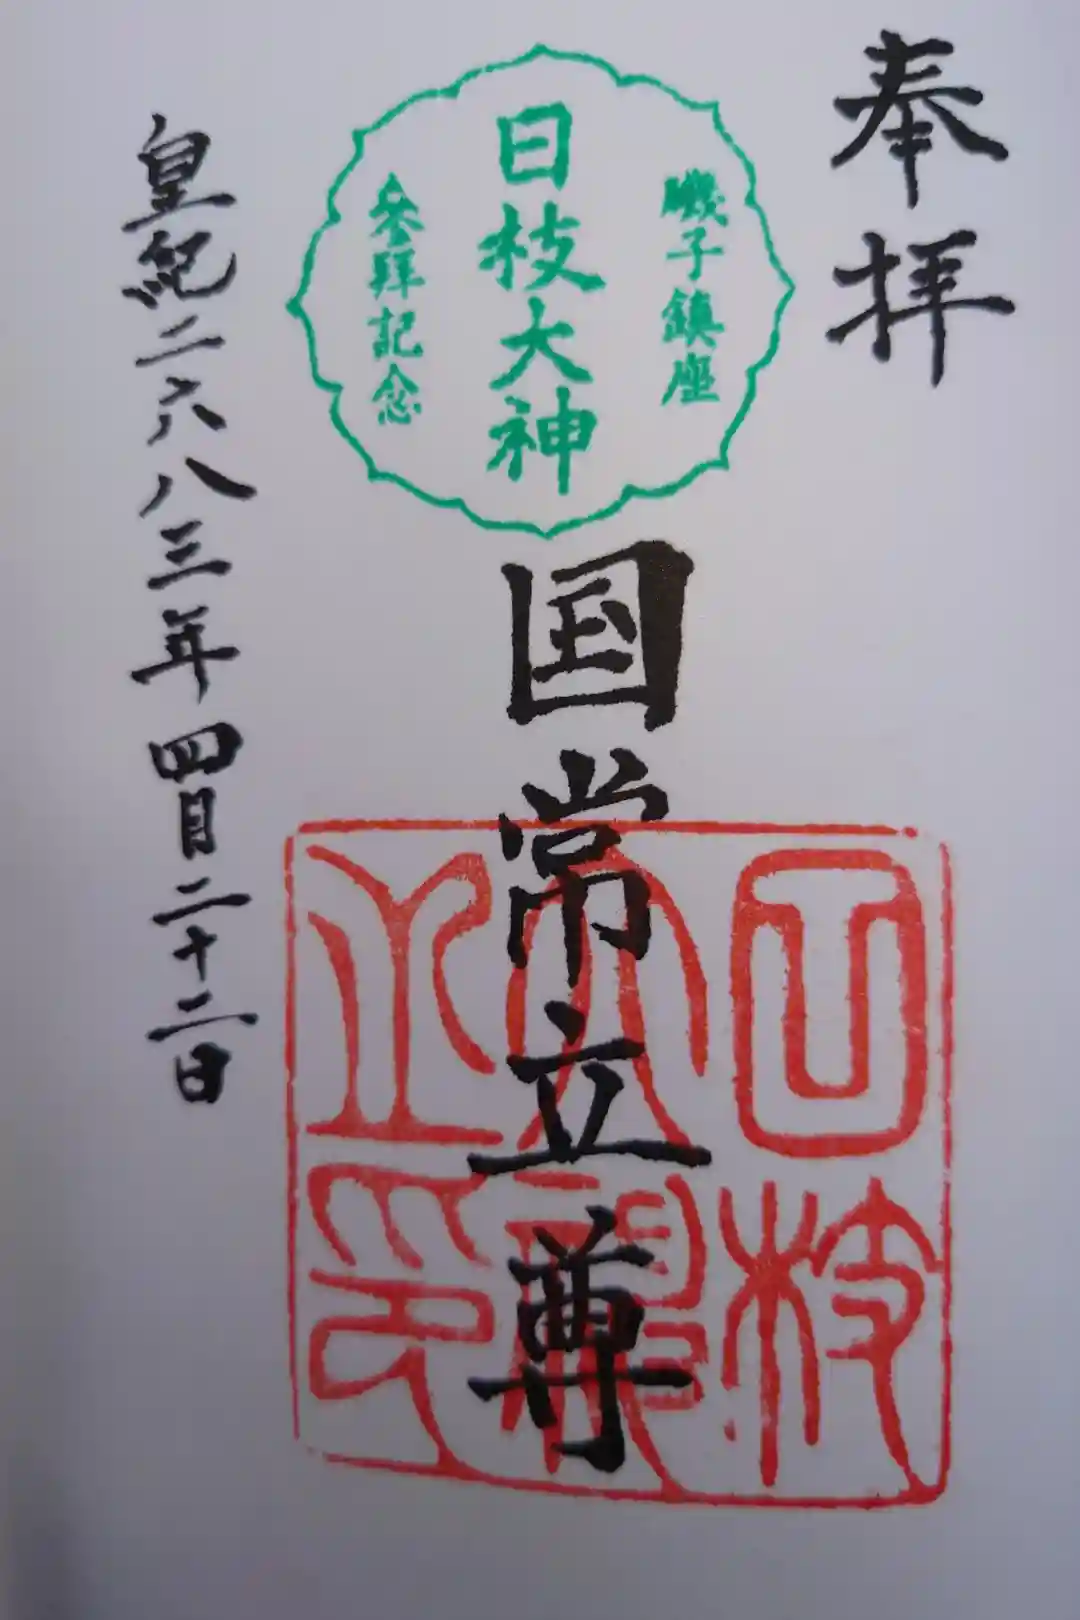 奉拝
磯子鎮座
日枝大神
参拜記念
国常立尊
日枝
大神
之印
皇紀二六八三年四月二十二日